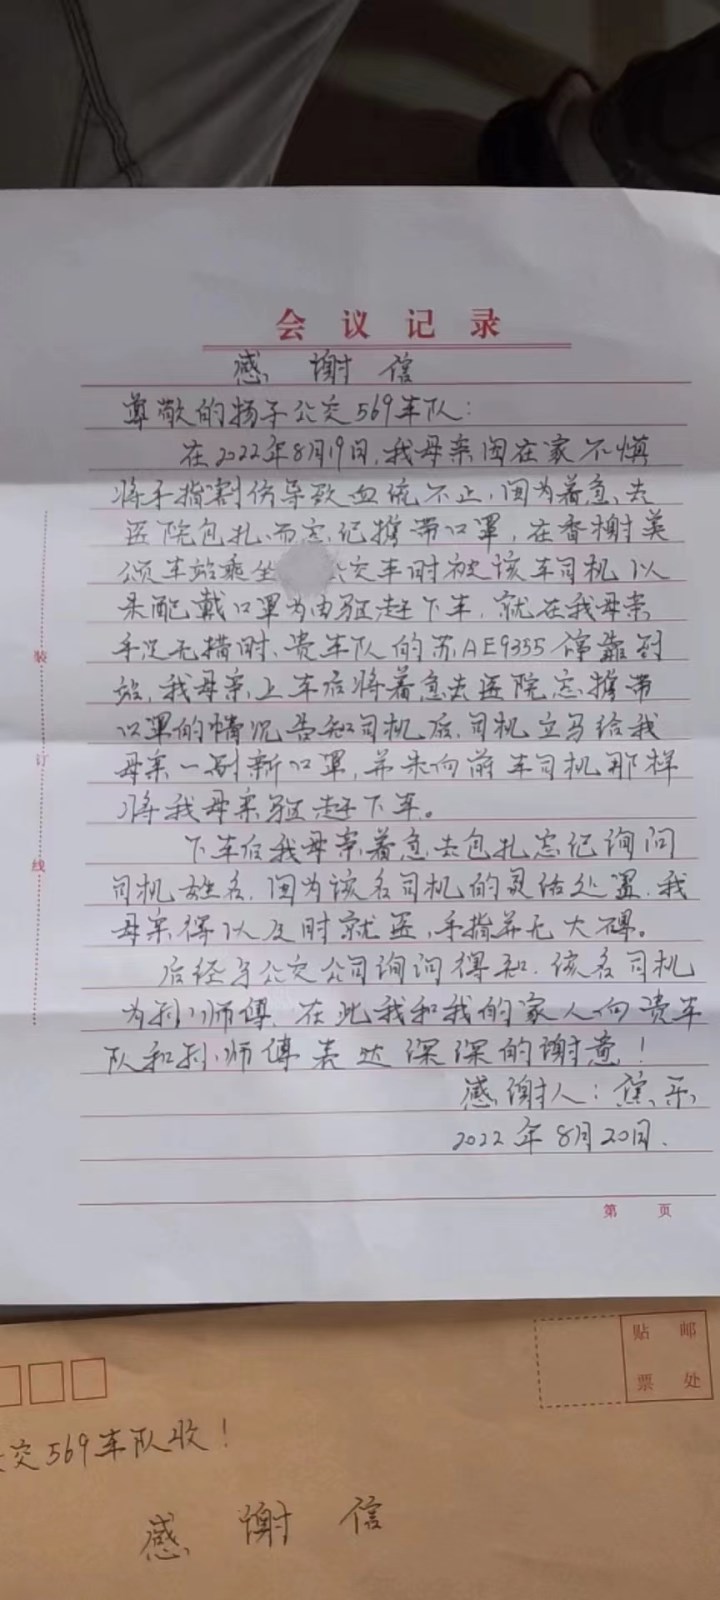 会议记录
感谢信
尊敬的扬子公交569车队:
在2022年8月19日,我母亲因在家不慎
将手指割伤导致血流不止,因为着急去
医院包扎而忘记携带口罩,在香榭美
颂车站乘坐 公交车时被该车司机以
未配戴口罩为由驱赶下车,就在我母亲
手足无措时、贵车队的苏AE9355停靠到
站,我母亲上车后将着急去医院忘携带
口罩的情况告知司机后,司机立马给我
母亲一副新口罩,并未向前车司机那样
将我母亲驱赶下车。
下车后我母亲着急去包扎忘记询问
司机姓名,因为该名司机的灵活处置,我
母亲得以及时就医,手指并无大碍。
后经与公交公司询问得知,该名司机
为孙师傅,在此我和我的家人向贵车
队和孙师傅表达深深的谢意!
感谢人:
2022年8月20日.
装
订
线
第 页
贴 邮
票 处
交569车队收!
感谢信